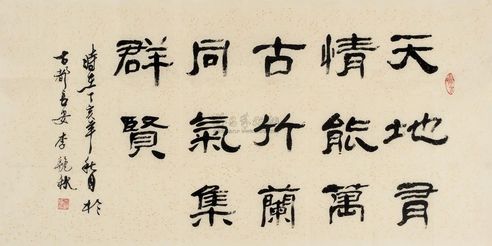 天地有
情能萬
古竹蘭
同氣集
群賢
時在丁亥年秋月於
古都長安李